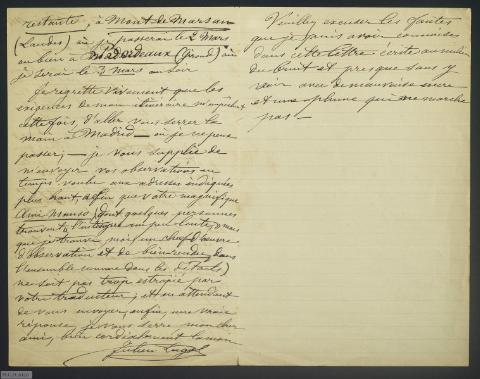 restante, à Mont de Marsan
(Landes) où je passerai le 2 Mars
ou bien à Bordeaux (Girond.) où
je serai le 3 mars au soir
Je regrette vivement que les
exigences de mon itinéraire m'empêchent
cette fois, d'aller vous serrer la
main à Madrid — où je ne puis
passer; — je vous supplie de
m'envoyer vos observations en
temps voulu aux adresses indiquées
plus haut, afin que votre magnifique
Amigo Manso (dont quelques personnes
trouvent l'intrigue un peu lente, mais
que je trouve, moi, un chef d'oeuvre
d'observation et de bien rendu, dans
l'ensemble comme dans les détails)
ne soit pas trop estropié par
votre traducteur; et en attendant
de vous envoyer, enfin, une vraie
réponse, je vous serre, mon cher
ami, bien cordialement la main
Julien Lugol
Veuillez excuser les fautes
que je puis avoir commises
dans cette lettre écrite au milieu
du bruit et presque sans y
voir avec de mauvaise encre
et une plume qui ne marche
pas! —